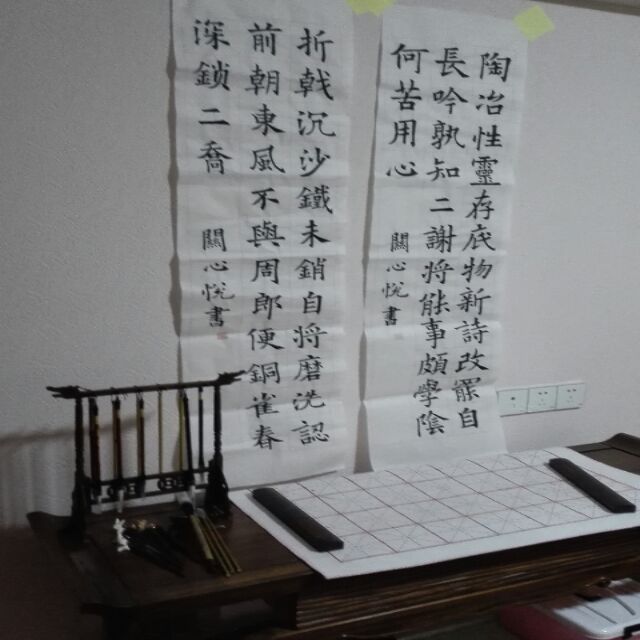 陶冶性靈存底物新詩改罷自
長吟孰知二謝將能事頗學陰
何苦用心
關心悅書
折戟沉沙鐵未銷自將磨洗認
前朝東風不與周郎便銅雀春
深鎖二喬
關心悅書